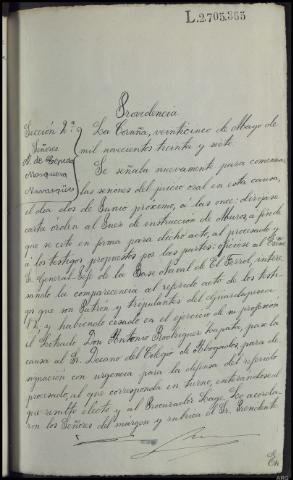 L.2.705.363
Providencia
Sección 2ª
Señores
de Cepeda
Mosquera
Navarqués
La Coruña, veinticinco de Mayo de
mil novecientos treinta y siete.
Se señala nuevamente para comenzar
las sesiones del juicio oral en esta causa,
el día dos de Junio próximo, a las once: diríjase
carta orden al Juez de instrucción de Muros, a fin de
que se cite en forma para dicho acto, al procesado y
a los testigos propuestos por las partes; ofíciese al Excmo
Sr. General-Jefe de la Base Naval de El Ferrol, intere-
sando la comparecencia al referido acto de los testi-
gos que son Patrón y tripulantes del guardapesca
y habiendo cesado en el ejercicio de su profesión
el Letrado Don Antonio Rodríguez Zapata, pase la
causa al Sr. Decano del Colegio de Abogados, para de-
signación con urgencia para la defensa del referido
procesado, al que corresponda en turno, enterándose al
que resulte electo y al Procurador Lage. Lo acorda-
ron los Señores del margen y rubrica el Sr. Presidente